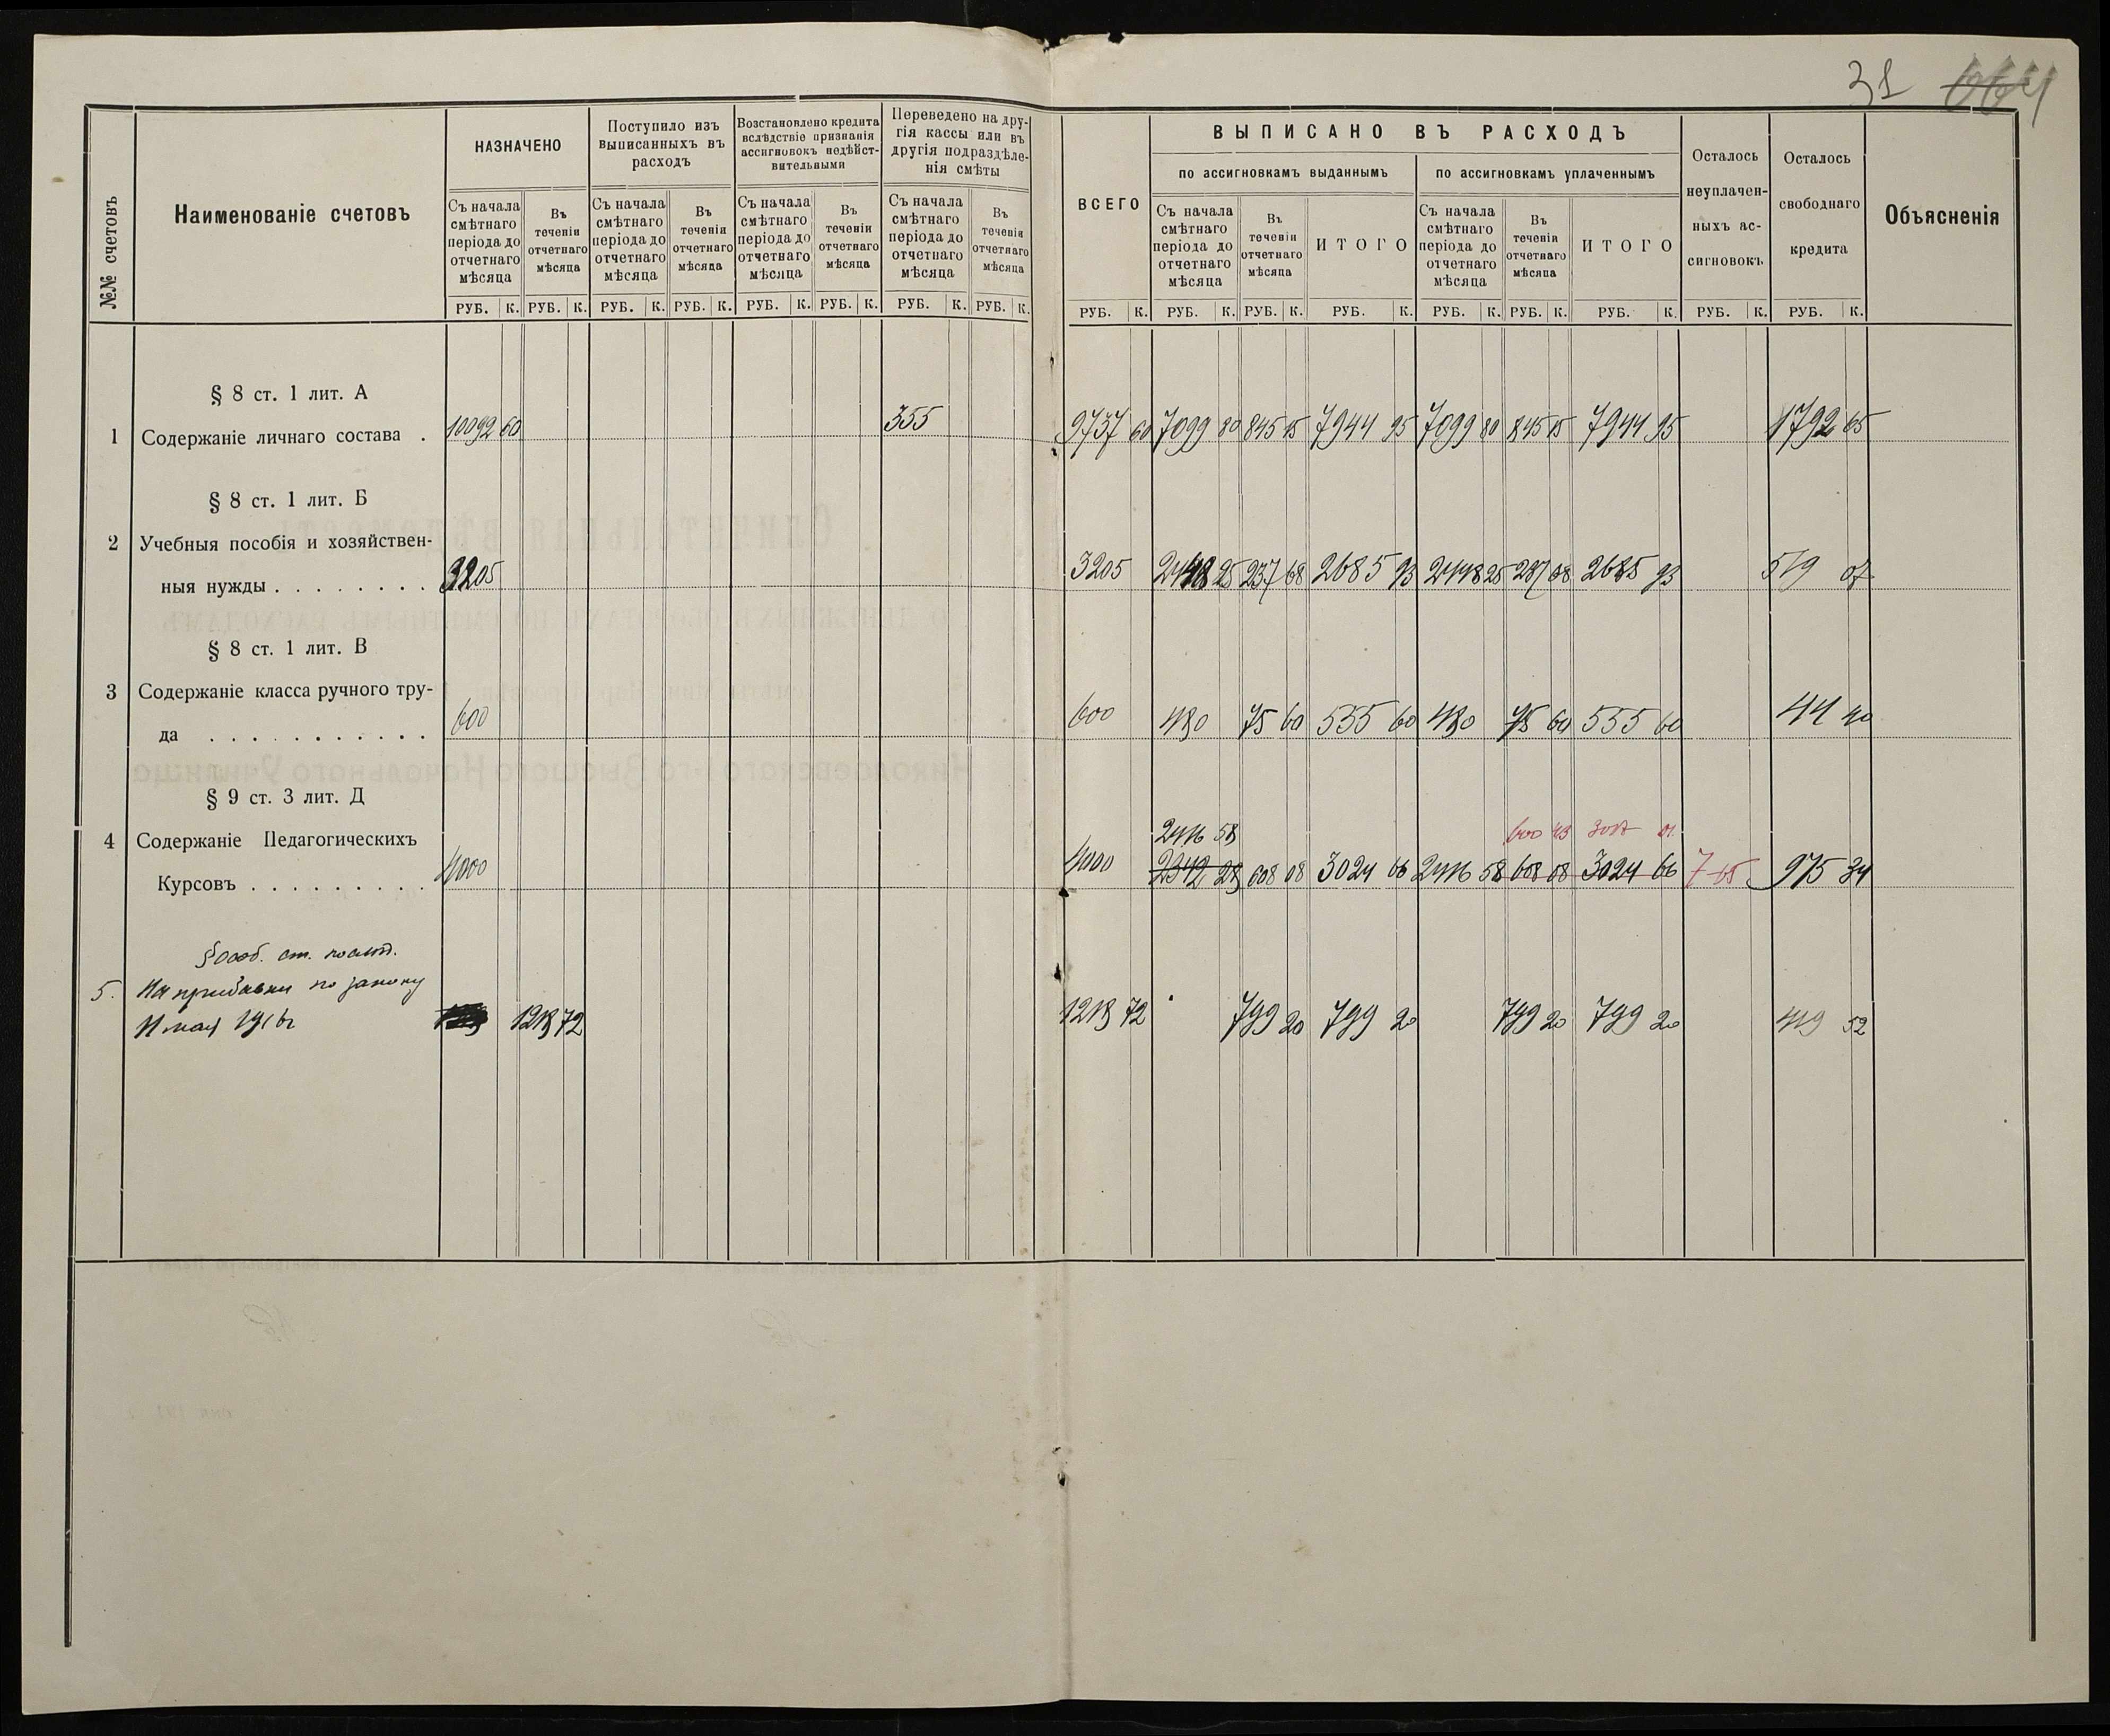 31 664
№№ счетовъ
Наименованіе счетовъ
НАЗНАЧЕНО
Поступило изъ
выписанныхъ въ
расходъ
Возстановлено кредита
вслѣдствіе признанія
ассигновокъ недѣйст-
вительными
Переведено на дру-
гія кассы или въ
другія подраздѣле-
нія смѣты
Съ начала
смѣтнаго
періода до
отчетнаго
мѣсяца
Въ
теченіи
отчетнаго
мѣсяца
Съ начала
смѣтнаго
періода до
отчетнаго
мѣсяца
Въ
теченіи
отчетнаго
мѣсяца
Съ начала
смѣтнаго
періода до
отчетнаго
мѣсяца
Въ
теченіи
отчетнаго
мѣсяца
Съ начала
смѣтнаго
періода до
отчетнаго
мѣсяца
Въ
теченіи
отчетнаго
мѣсяца
РУБ. К. РУБ. К. РУБ. К. РУБ. К. РУБ. К. РУБ. К. РУБ. К. РУБ. К.
ВСЕГО
ВЫПИСАНО ВЪ РАСХОДЪ
по ассигновкамъ выданнымъ
по ассигновкамъ уплаченнымъ
Съ начала
смѣтнаго
періода до
отчетнаго
мѣсяца
Въ
теченіи
отчетнаго
мѣсяца
ИТОГО
Съ начала
смѣтнаго
періода до
отчетнаго
мѣсяца
Въ
теченіи
отчетнаго
мѣсяца
ИТОГО
Осталось
неуплачен-
ныхъ ас-
сигновокъ
Осталось
свободнаго
кредита
Объясненія
РУБ. К. РУБ. К. РУБ. К. РУБ. К. РУБ. К. РУБ. К. РУБ. К. РУБ. К. РУБ. К.
§ 8 ст. 1 лит. А
1 Содержаніе личнаго состава . 10092 60 355 9737 60 7099 80 845 15 7944 95 7099 80 845 15 7944 95 1792 65
§ 8 ст. 1 лит. Б
2 Учебныя пособія и хозяйствен-
ныя нужды . . . . . . . . 3205 3205 2448 25 237 68 2685 93 2448 25 237 68 2685 93 519 07
§ 8 ст. 1 лит. В
3 Содержаніе класса ручного тру-
да . . . . . . . . . . . 600 600 480 75 60 555 60 480 75 60 555 60 44 40
§ 9 ст. 3 лит. Д
2416 58 600 43 3017 01
4 Содержаніе Педагогическихъ
Курсовъ . . . . . . . . . 4000 4000 2342 28 608 08 3024 66 2416 58 608 08 3024 66 7 65 975 34
§ особ. ст. послѣд.
5. На прибавки по закону
11 мая 1916 г 1218 72 1218 72 799 20 799 20 799 20 799 20 419 52